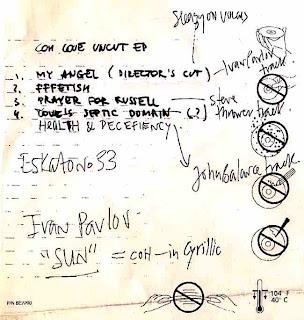 Sleazy on vocals
COH LOVE UNCUT EP
1. MY ANGEL (DIRECTOR'S CUT) Ivan Pavlov track
2. FFFETISH
3. PRAYER FOR RUSSELL Steve Thrower track
4. LOVE'S SEPTIC DOMAIN (..?)
HEALTH & DECEFIENCY
John Balance track
ESKATON 033
Ivan Pavlov
"SUN" = COH - in Cyrillic
104 F
40°C
P/N